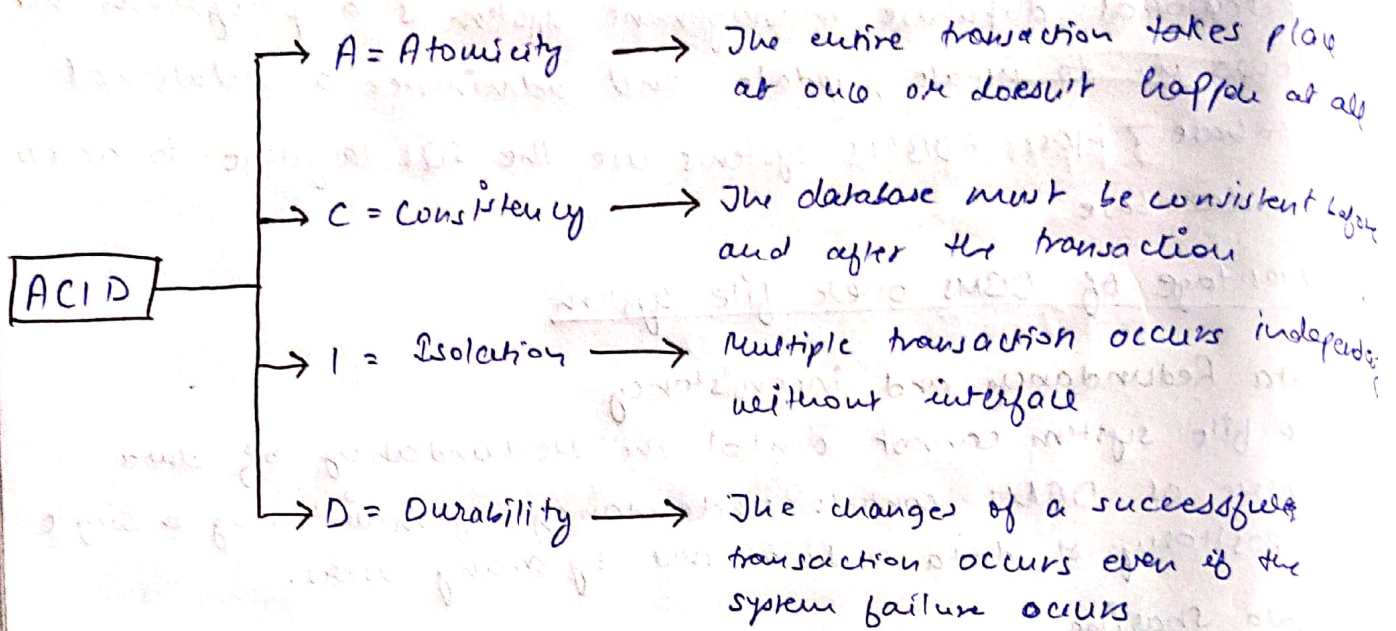 A = Atomicity → The entire transaction takes place
at once or doesn't happen at all
C = Consistency → The database must be consistent before
and after the transaction
ACID
I = Isolation → Multiple transaction occurs
without interface
D = Durability → The changes of a successful
transaction occurs even if the
system failure occurs